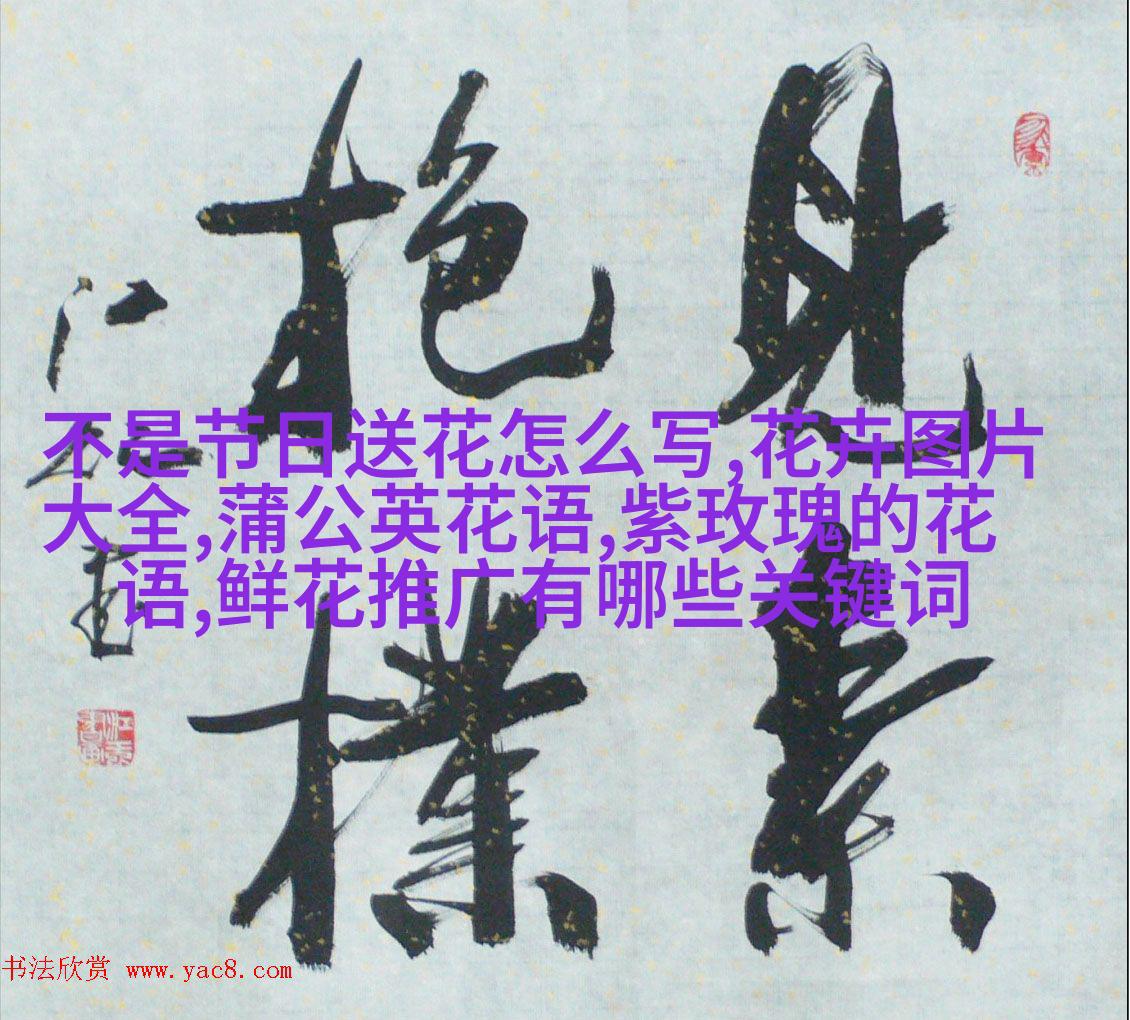 見素
抱樸
不是节日送花怎么写,花卉图片
大全,蒲公英花语,紫玫瑰的花
语,鲜花推广有哪些关键词
书法欣赏 www.yac8.com